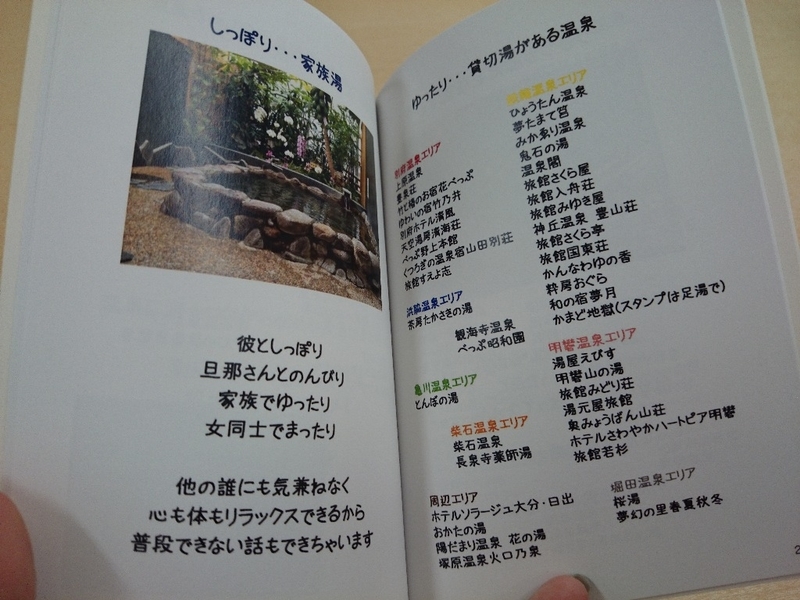 しっぽり・・・家族湯
彼としっぽり
旦那さんとのんびり
家族でゆったり
女同士でまったり
他の誰にも気兼ねなく
心も体もリラックスできるから
普段できない話もできちゃいます
ゆったり・・・貸切湯がある温泉
別府温泉エリア
上原温泉
豊泉荘
竹と椿のお宿花べっぷ
ゆわいの宿竹乃井
別府ホテル清風
天空湯房清海荘
べっぷ野上本館
くつろぎの温泉宿山田別荘
旅館すえよ志
浜脇温泉エリア
茶房たかさきの湯
観海寺温泉
べっぷ昭和園
亀川温泉エリア
とんぼの湯
柴石温泉エリア
柴石温泉
長泉寺薬師湯
周辺エリア
ホテルソラージュ大分・日出
おかたの湯
陽だまり温泉 花の湯
塚原温泉火口乃泉
鉄輪温泉エリア
ひょうたん温泉
夢たまて筥
みかゑり温泉
鬼石の湯
温泉閣
旅館さくら屋
旅館入舟荘
旅館みゆき屋
神丘温泉 豊山荘
旅館さくら亭
旅館国東荘
かんなわゆの香
粋房おぐら
和の宿夢月
かまど地獄(スタンプは足湯で)
明礬温泉エリア
湯屋えびす
明礬山の湯
旅館みどり荘
湯元屋旅館
奥みょうばん山荘
ホテルさわやかハートピア明礬
旅館若杉
堀田温泉エリア
桜湯
夢幻の里春夏秋冬